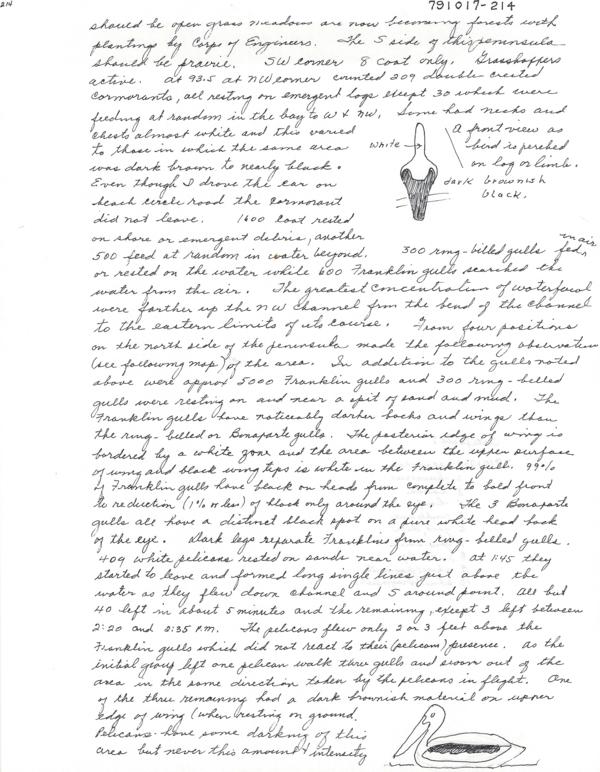 214
791017-214
should be open grass meadows are now becoming forests with
plantings by Corps of Engineers. The S side of this peninsula
should be prairie. SW corner 8 coot only. Grasshoppers
active. At 93.5 at NW corner counted 209 double crested
cormorants, all resting on emergent logs except 30 which were
feeding at random in the bay to W & NW. Some had necks and
chests almost white and this varied
to those in which the same area
was dark brown to nearly black.
Even though I drove the car on
beach circle road the cormorant
did not leave. 1600 coot rested
on shore or emergent debris, another
white
A front view as
bird is perched
on log or limb.
dark brownish
black.
500 feed at random in water beyond. 300 ring-billed gulls fed in air
or rested on the water while 600 Franklin gulls searched the
water from the air. The greatest concentration of waterfowl
were farther up the NW channel from the bend of the channel
to the eastern limits of its course. From four positions
on the north side of the peninsula made the following observation
(see following map) of the area. In addition to the gulls noted
above were approx 5000 Franklin gulls and 300 ring-billed
gulls were resting on and near a spit of sand and mud. The
Franklin gulls have noticeably darker backs and wings than
the ring-billed or Bonaparte gulls. The posterior edge of wing is
bordered by a white zone and the area between the upper surface
of wing and black wing tips is white in the Franklin gull. 99%
of Franklin gulls have black on heads from complete to bald front
to reduction (1% or less) of black only around the eye. The 3 Bonaparte
gulls all have a distinct black spot on a pure white head back
of the eye. Dark legs separate Franklins from ring-billed gulls.
409 white pelicans rested on sands near water. At 1:45 they
started to leave and formed long single lines just above the
water as they flew down channel and S around point. All but
40 left in about 5 minutes and the remaining, except 3 left between
2:20 and 2:35 P.M. The pelicans flew only 2 or 3 feet above the
Franklin gulls which did not react to their (pelicans) presence. As the
initial group left one pelican walk thru gulls and swam out of the
area in the same direction taken by the pelicans in flight. One
of the three remaining had a dark brownish material on upper
edge of wing (when resting on ground.
Pelicans have some darking of this
area but never this amount & intensity